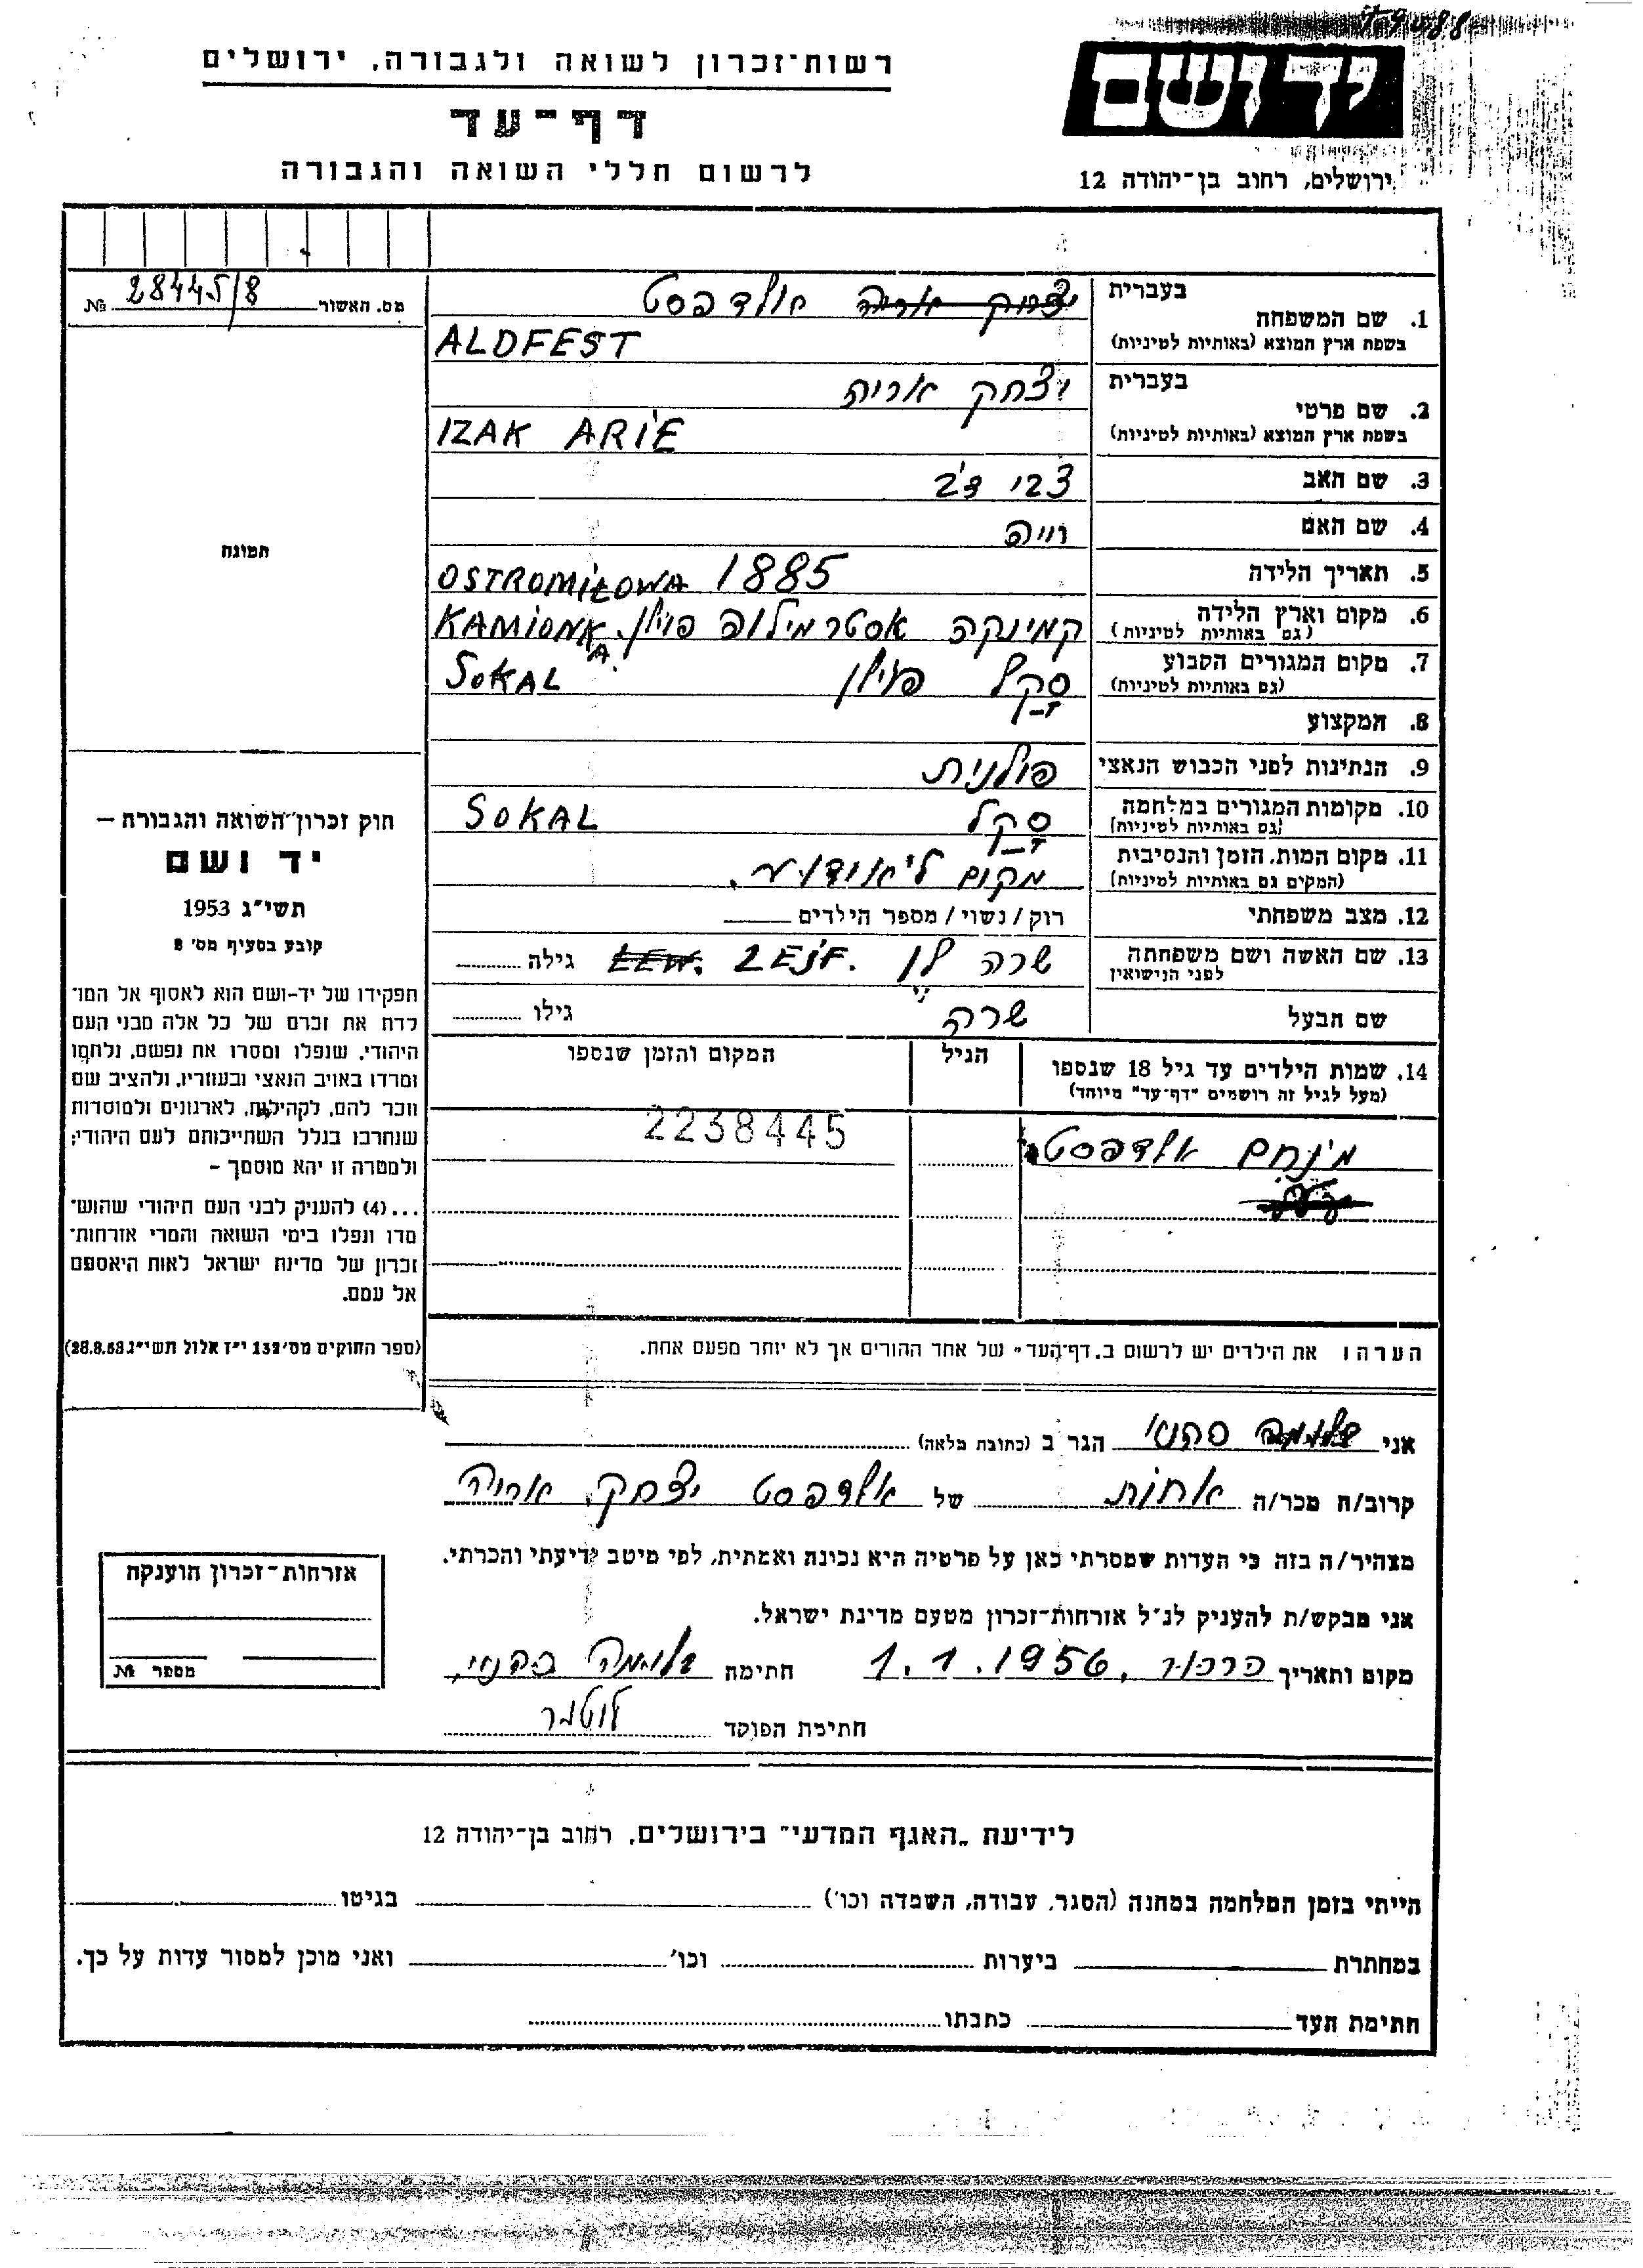 רשות־זכרון לשואה ולגבורה, ירושלים
דף־עד
לרשום חללי השואה והגבורה
יד ושם
ירושלים, רחוב בן־יהודה 12
מס. האשור 28445/8 №
1. שם המשפחה
בעברית
יצחק אריה אולדפסט
בשפת ארץ המוצא (באותיות לטיניות)
ALDFEST
2. שם פרטי
בעברית
יצחק אריה
בשפת ארץ המוצא (באותיות לטיניות)
IZAK ARIE
3. שם האב
צבי
4. שם האם
5. תאריך הלידה
1885
OSTROMIŁOWA
6. מקום וארץ הלידה
(גם באותיות לטיניות)
קמינקה אסטרמילוב פוילן. KAMIONKA
7. מקום המגורים הקבוע
(גם באותיות לטיניות)
סקל פוילן SOKAL
8. המקצוע
9. הנתינות לפני הכבוש הנאצי
פולנית
10. מקומות המגורים במלחמה
(גם באותיות לטיניות)
סקל SOKAL
11. מקום המות, הזמן והנסיבות
(המקום גם באותיות לטיניות)
מקום
12. מצב משפחתי
רוק / נשוי / מספר הילדים
13. שם האשה ושם משפחתה
לפני הנישואין
שרה LEJF. גילה
שם הבעל
שרה גילו
14. שמות הילדים עד גיל 18 שנספו
(מעל לגיל זה רושמים "דף־עד" מיוחד)
הגיל
המקום והזמן שנספו
מנחם אלדפסט
2238445
תמונה
חוק זכרון־השואה והגבורה –
יד ושם
תשי"ג 1953
קובע בסעיף מס' 2
תפקידו של יד-ושם הוא לאסוף אל המו־
לדת את זכרם של כל אלה מבני העם
היהודי, שנפלו ומסרו את נפשם, נלחמו
ומרדו באויב הנאצי ובעוזריו, ולהציב שם
וזכר להם, לקהילות, לארגונים ולמוסדות
שנחרבו בגלל השתייכותם לעם היהודי;
ולמטרה זו יהא מוסמך –
...(4) להעניק לבני העם היהודי שהוש־
מדו ונפלו בימי השואה והמרי אזרחות־
זכרון של מדינת ישראל לאות היאספם
אל עמם.
(ספר החוקים מס' 132 י"ז אלול תשי"ג 28.8.53)
הערה: את הילדים יש לרשום ב„דף־העד" של אחד ההורים אך לא יותר מפעם אחת.
אני הגר ב (כתובת מלאה)
קרוב/ה מכר/ה אחות של אלדפסט יצחק אריה
מצהיר/ה בזה כי העדות שמסרתי כאן על פרטיה היא נכונה ואמתית, לפי מיטב ידיעתי והכרתי.
אני מבקש/ת להעניק לנ"ל אזרחות־זכרון מטעם מדינת ישראל.
מקום ותאריך כרכור, 1.1.1956 חתימה
חתימת הפוקד
אזרחות־זכרון הוענקה
מספר №
לידיעת „האגף המדעי" בירושלים, רחוב בן־יהודה 12
הייתי בזמן המלחמה במחנה (הסגר, עבודה, השמדה וכו') בגיטו
במחתרת ביערות וכו' ואני מוכן למסור עדות על כך.
חתימת העד כתבתו